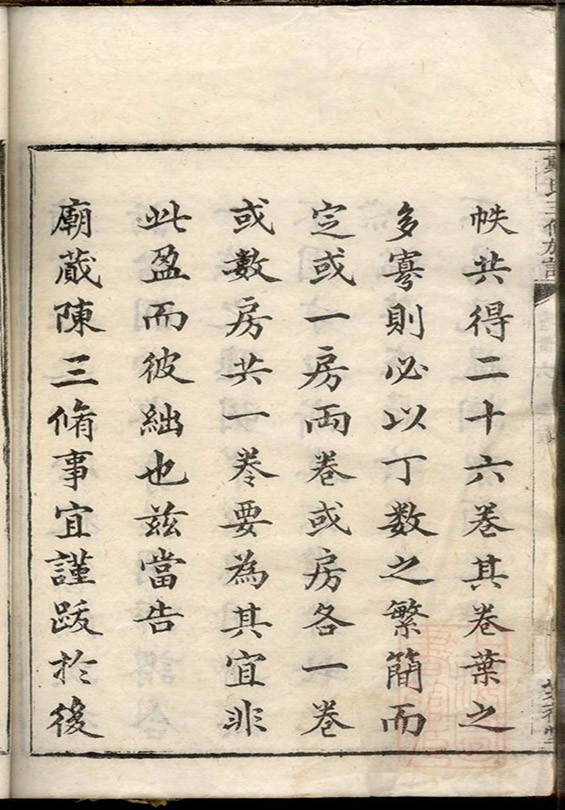 帙共得二十六卷其卷葉之
多寡則必以丁數之繁簡而
定或一房两卷或房各一卷
或數房共一卷要為其宜非
此盈而彼絀也兹當告
廟蕆陳三脩事宜謹跋於後